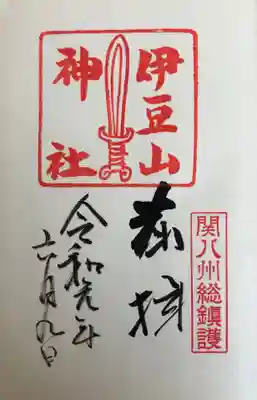 伊豆山
神社
奉拝
関八州総鎮護
令和元年
六月九日